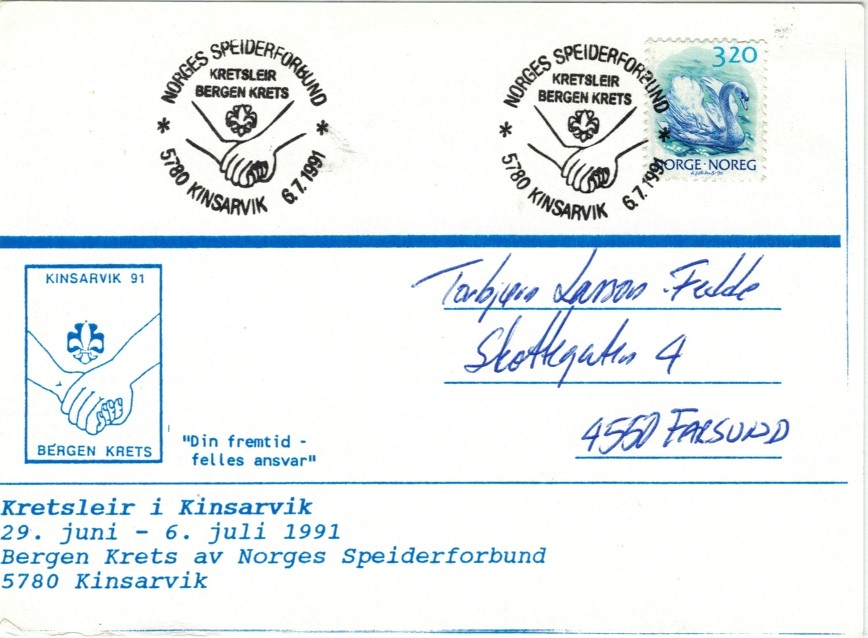 NORGES SPEIDERFORBUND
KRETSLEIR
BERGEN KRETS
* *
5780 KINSARVIK 6.7.1991
NORGES SPEIDERFORBUND
KRETSLEIR
BERGEN KRETS
* *
5780 KINSARVIK 6.7.1991
320
NORGE·NOREG
KINSARVIK 91
BERGEN KRETS
"Din fremtid -
felles ansvar"
Torbjørn Larsson Fedde
Skottegaten 4
4550 FARSUND
Kretsleir i Kinsarvik
29. juni - 6. juli 1991
Bergen Krets av Norges Speiderforbund
5780 Kinsarvik